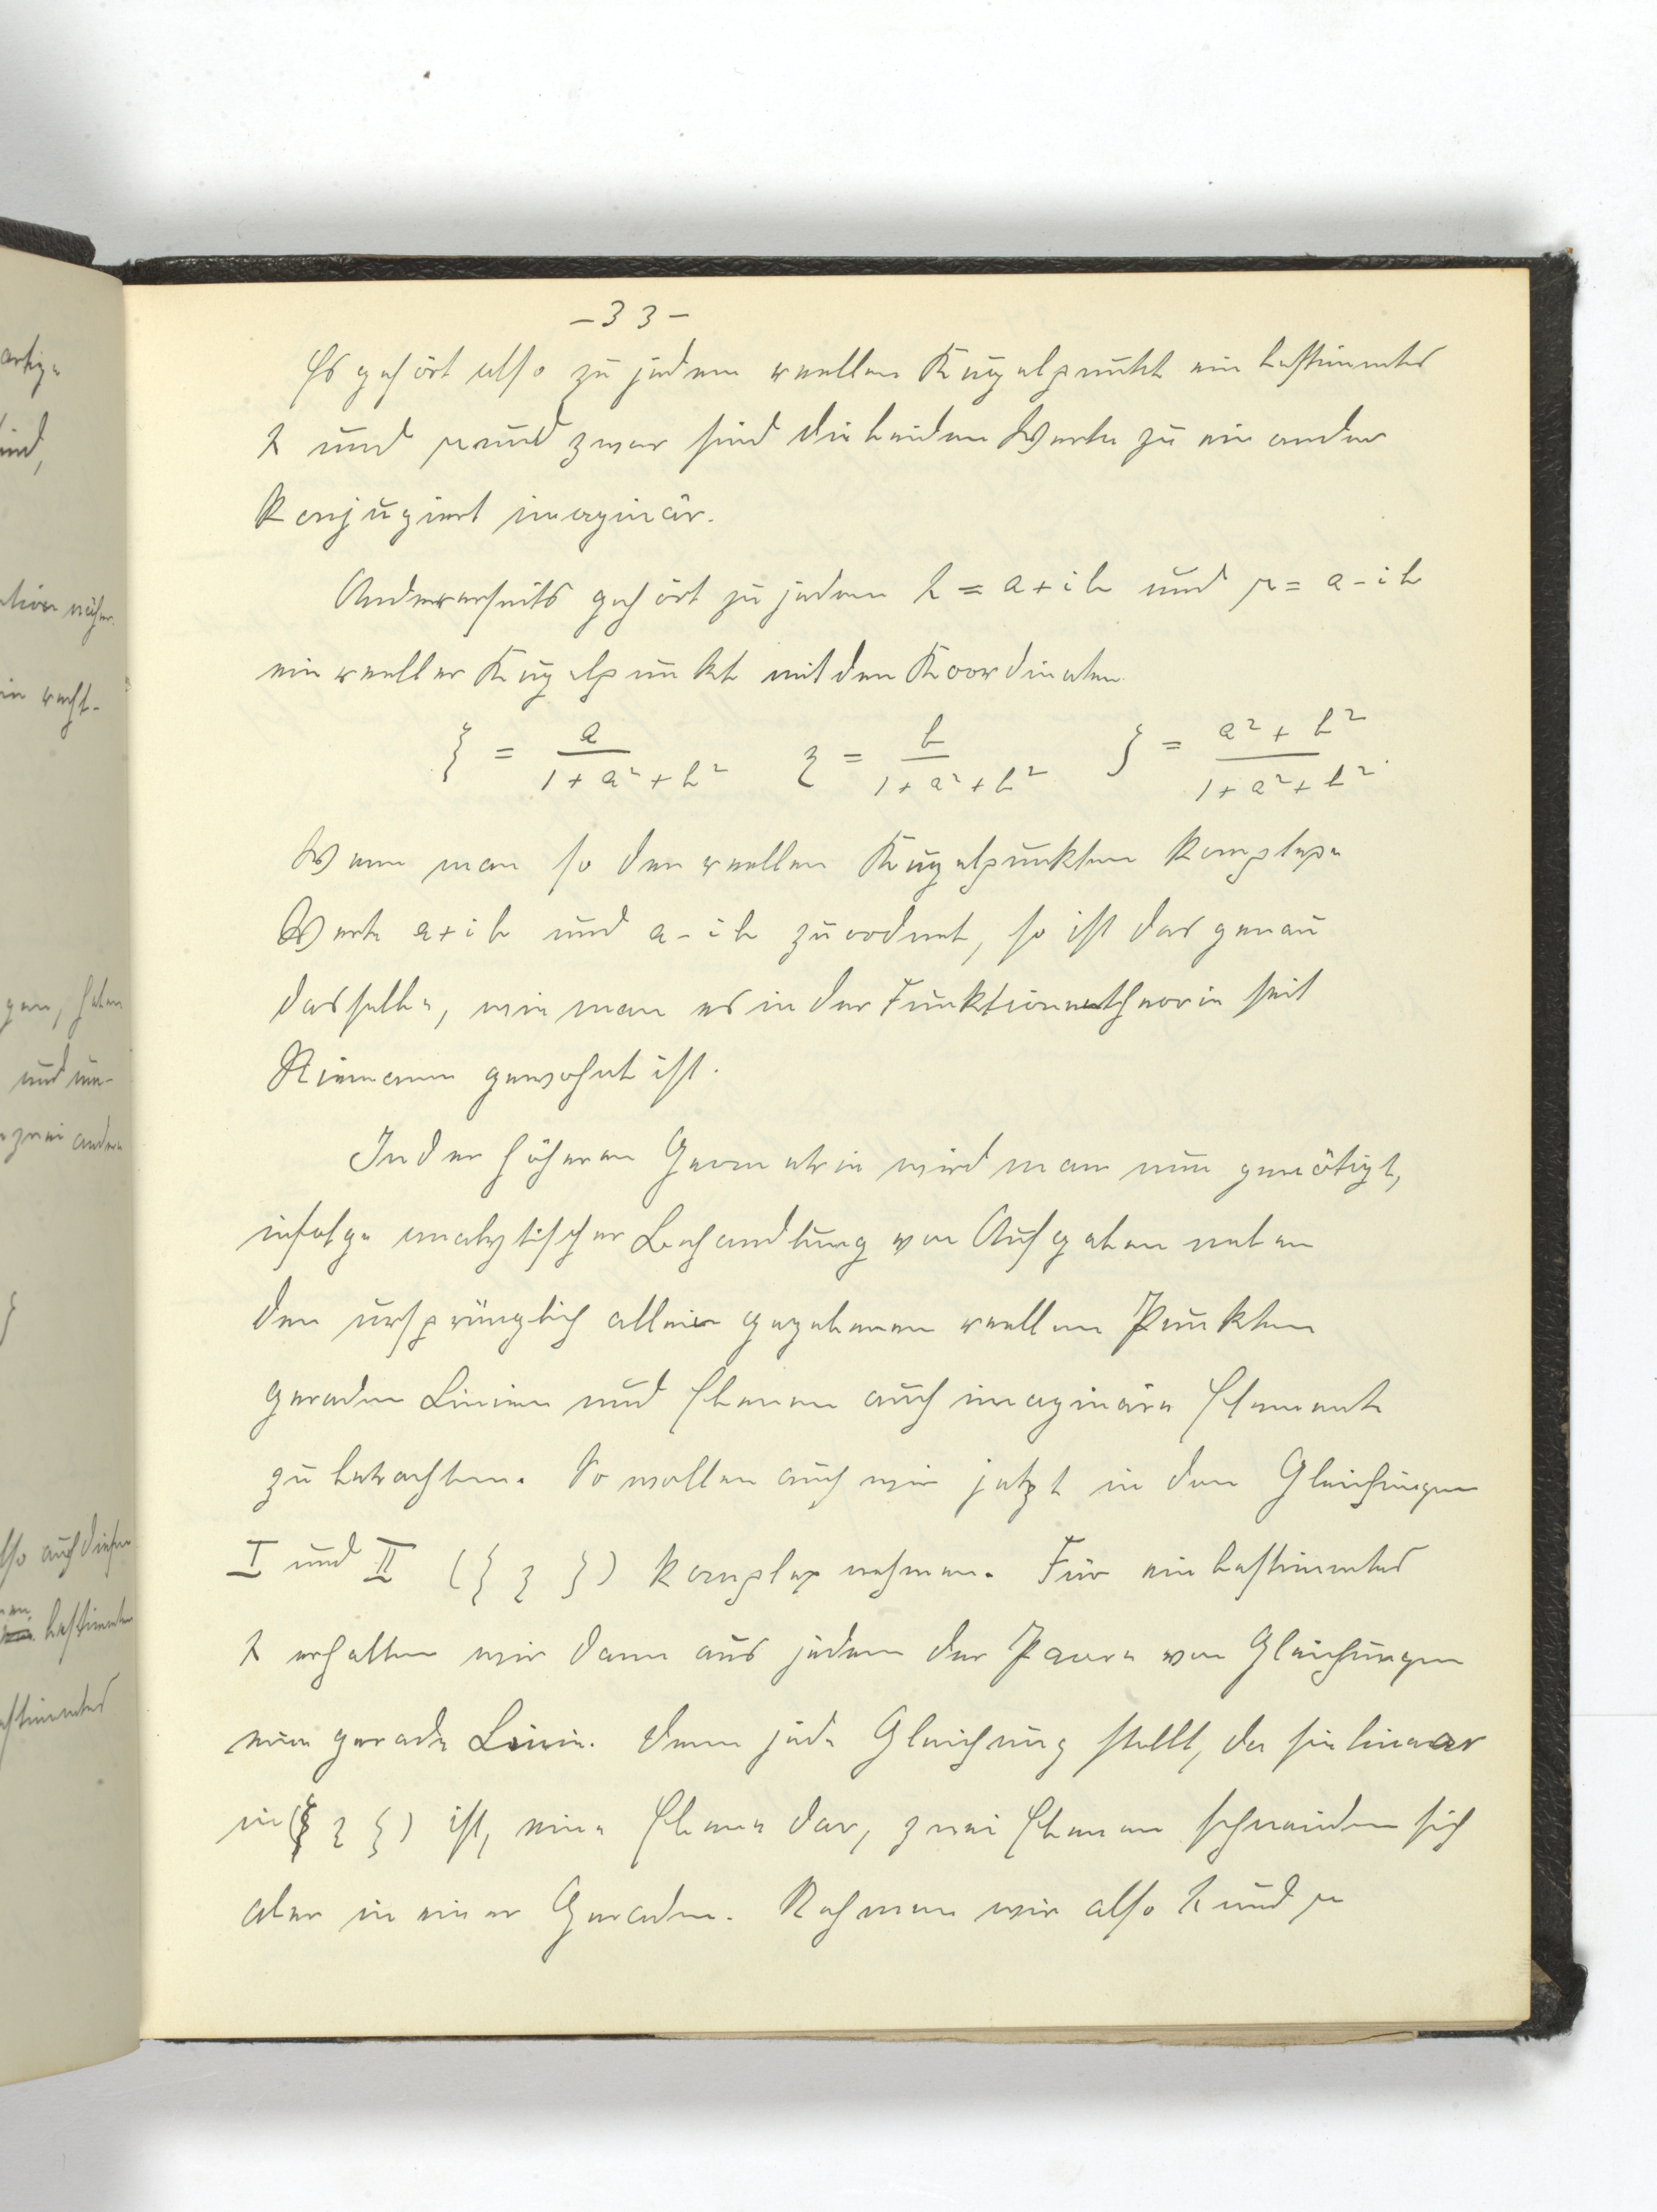 artige
ind,
-33-
Es gehört also zu jedem reellen Kugelpunkt ein bestimmtes
λ und μ und zwar sind die beiden Werte zu einander
konjugiert imaginär.
ation näher
Andererseits gehört zu jedem λ = a+ib und μ = a-ib
in recht-
ein reeller Kugelpunkt mit den Koordinaten
ξ = a / (1+a²+b²) η = b / (1+a²+b²) ζ = (a²+b²) / (1+a²+b²).
Wenn man so den reellen Kugelpunkten komplexe
Werte a+ib und a-ib zuordnet, so ist das genau
gen, haben
dasselbe, wie man es in der Funktionentheorie seit
und un-
Riemann gewohnt ist.
zwei andere
In der höheren Geometrie wird man nun genötigt,
infolge analytischer Behandlung von Aufgaben neben
den ursprünglich allein gegebenen reellen Punkten
geraden Linien und Ebenen auch imaginäre Elemente
zu betrachten. So wollen auch wir jetzt in den Gleichungen
lso auch diesen
I und II (ξ η ζ) komplex nehmen. Für ein bestimmtes
bestimmten
λ erhalten wir dann aus jedem der Paare von Gleichungen
estimmtes
eine gerade Linie. Denn jede Gleichung stellt, da sie linear
in (ξ η ζ) ist, eine Ebene dar, zwei Ebenen schneiden sich
aber in einer Geraden. Nehmen wir also λ und μ